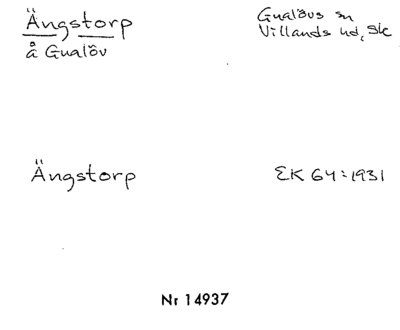 Ängstorp
å Gualöv
Gualövs sn
Villands hd, Sk
Ängstorp
EK 64:1931
Nr 14937